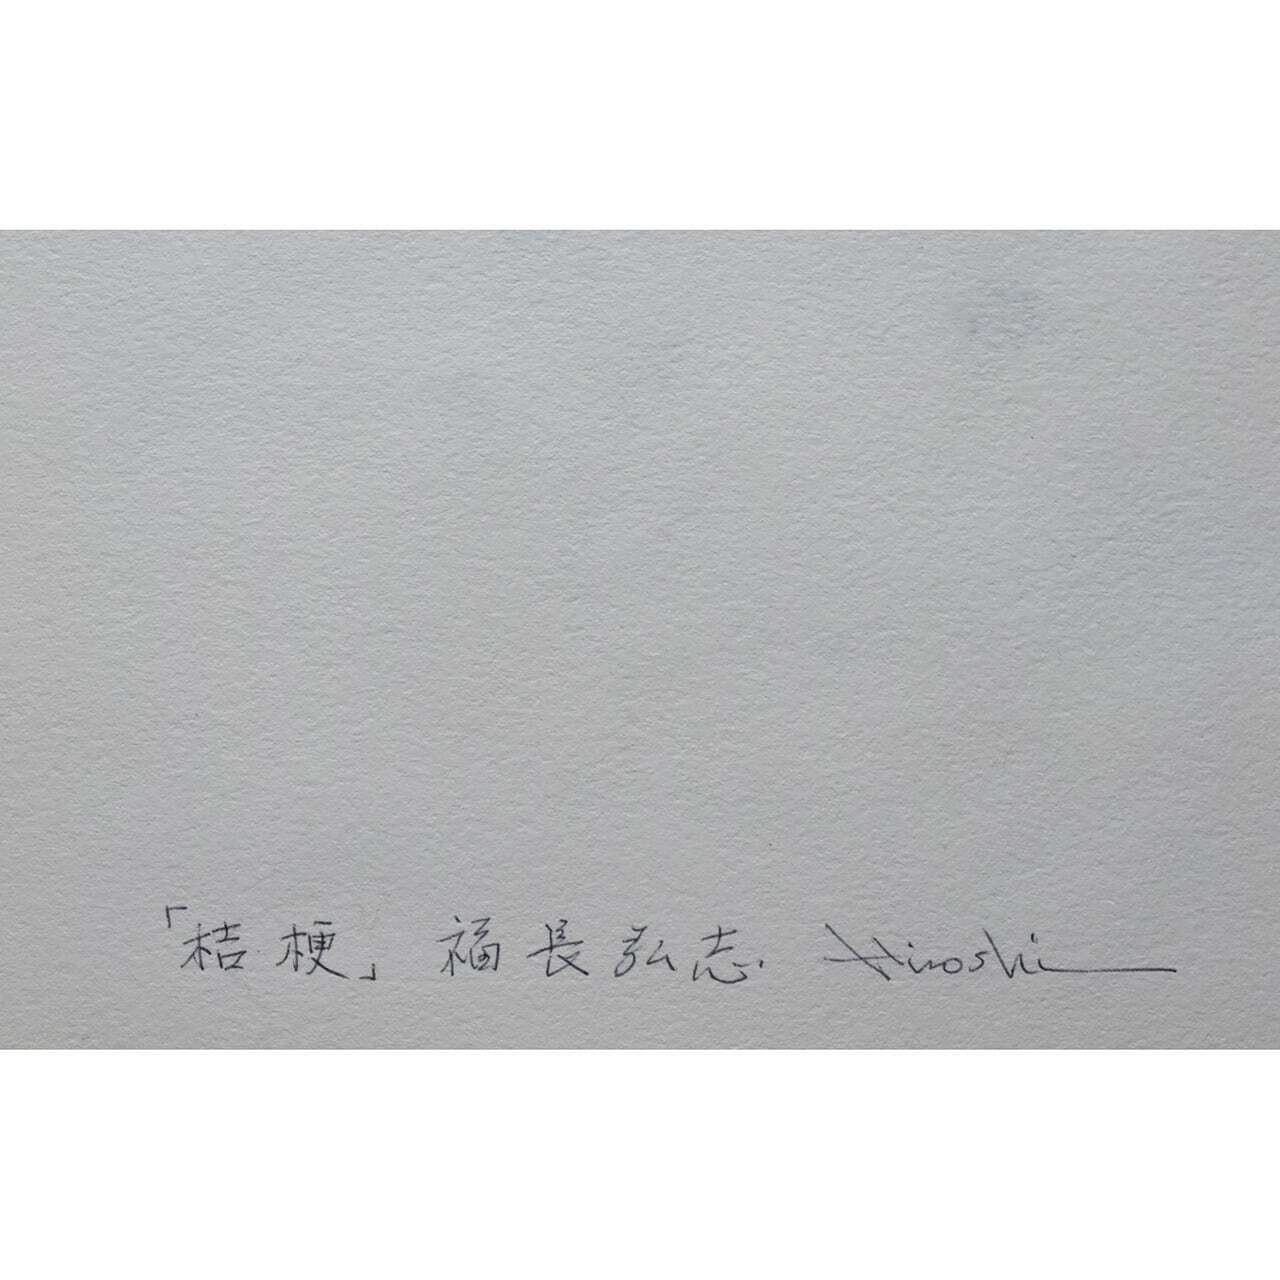 「桔梗」 福長弘志. Hiroshi